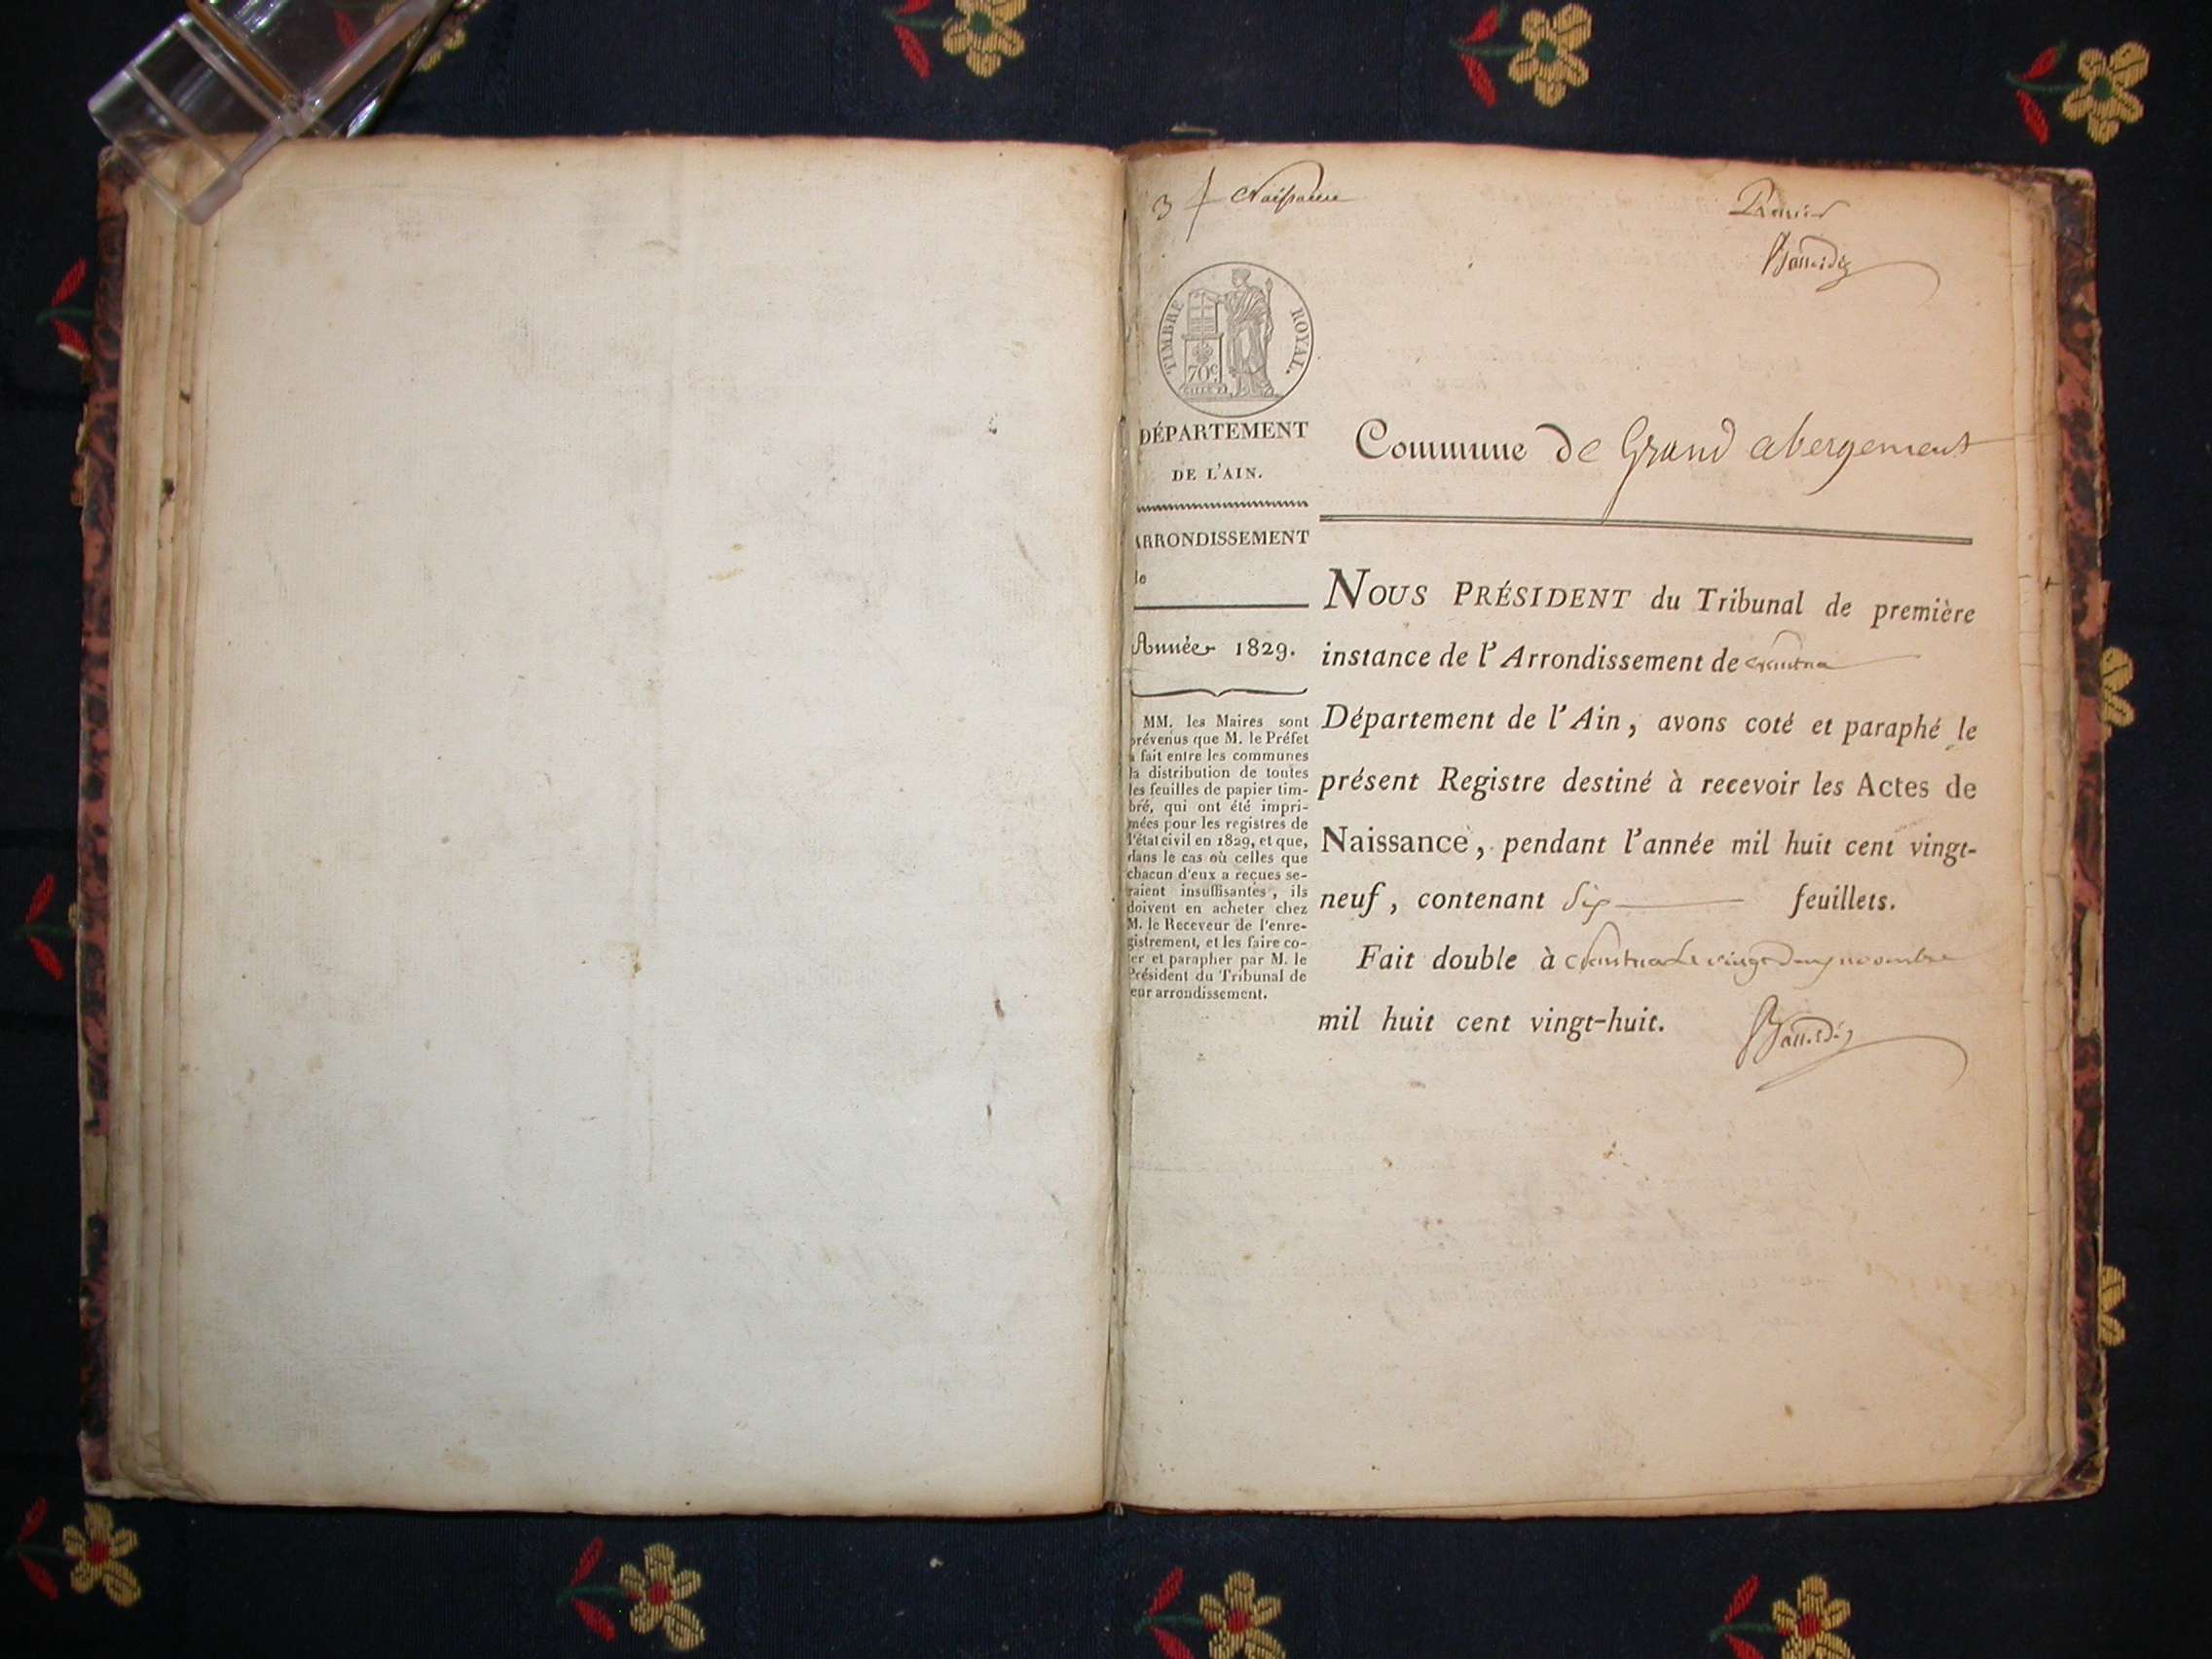 3 Naissance
Premier
TIMBRE ROYAL.
70c
DÉPARTEMENT
DE L'AIN.
ARRONDISSEMENT
de
Année 1829.
MM. les Maires sont
prévenus que M. le Préfet
a fait entre les communes
la distribution de toutes
les feuilles de papier tim-
bré, qui ont été impri-
mées pour les registres de
l'état civil en 1829, et que,
dans le cas où celles que
chacun d'eux a reçues se-
raient insuffisantes, ils
doivent en acheter chez
M. le Receveur de l'enre-
gistrement, et les faire co-
ter et parapher par M. le
Président du Tribunal de
leur arrondissement.
Commune de Grand abergement
NOUS PRÉSIDENT du Tribunal de première
instance de l'Arrondissement de Nantua
Département de l'Ain, avons coté et paraphé le
présent Registre destiné à recevoir les Actes de
Naissance, pendant l'année mil huit cent vingt-
neuf, contenant Six feuillets.
Fait double à Nantua le vingt deux novembre
mil huit cent vingt-huit.